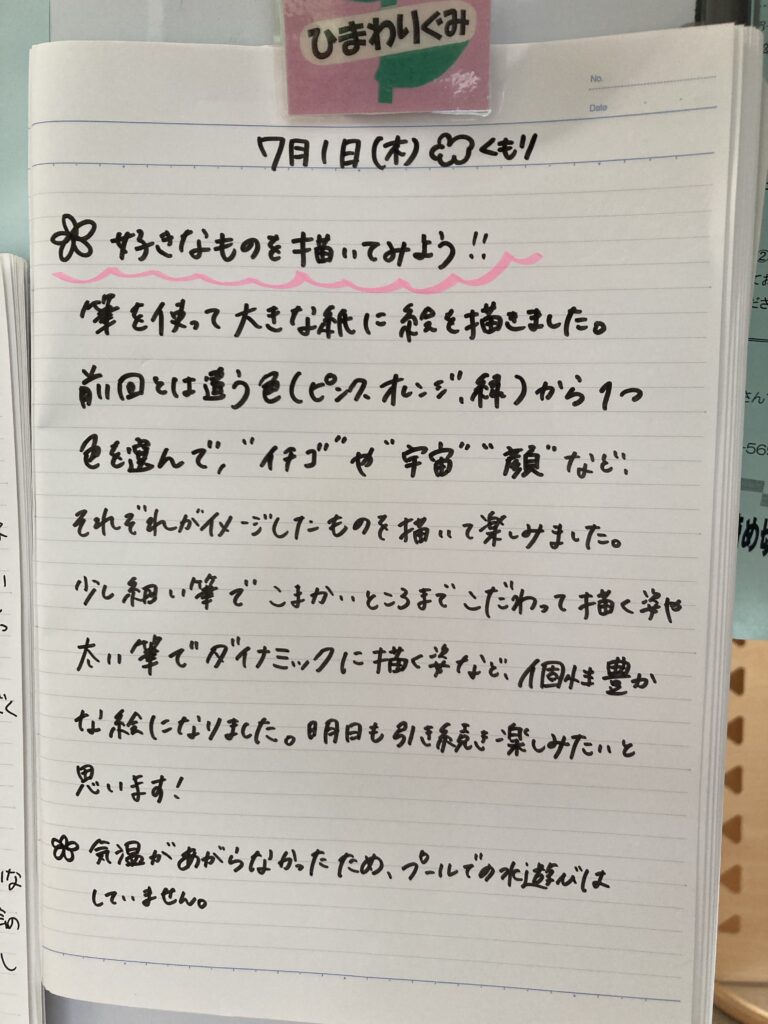 ひまわりぐみ
No.
Date
7月1日(木) くもり
好きなものを描いてみよう!!
筆を使って大きな紙に絵を描きました。
前回とは違う色(ピンク、オレンジ、緑)から1つ
色を選んで、"イチゴ"や"宇宙""顔"など、
それぞれがイメージしたものを描いて楽しみました。
少し細い筆でこまかいところまでこだわって描く姿や
太い筆でダイナミックに描く姿など、個性豊か
な絵になりました。明日も引き続き楽しみたいと
思います!
気温があがらなかったため、プールでの水遊びは
していません。